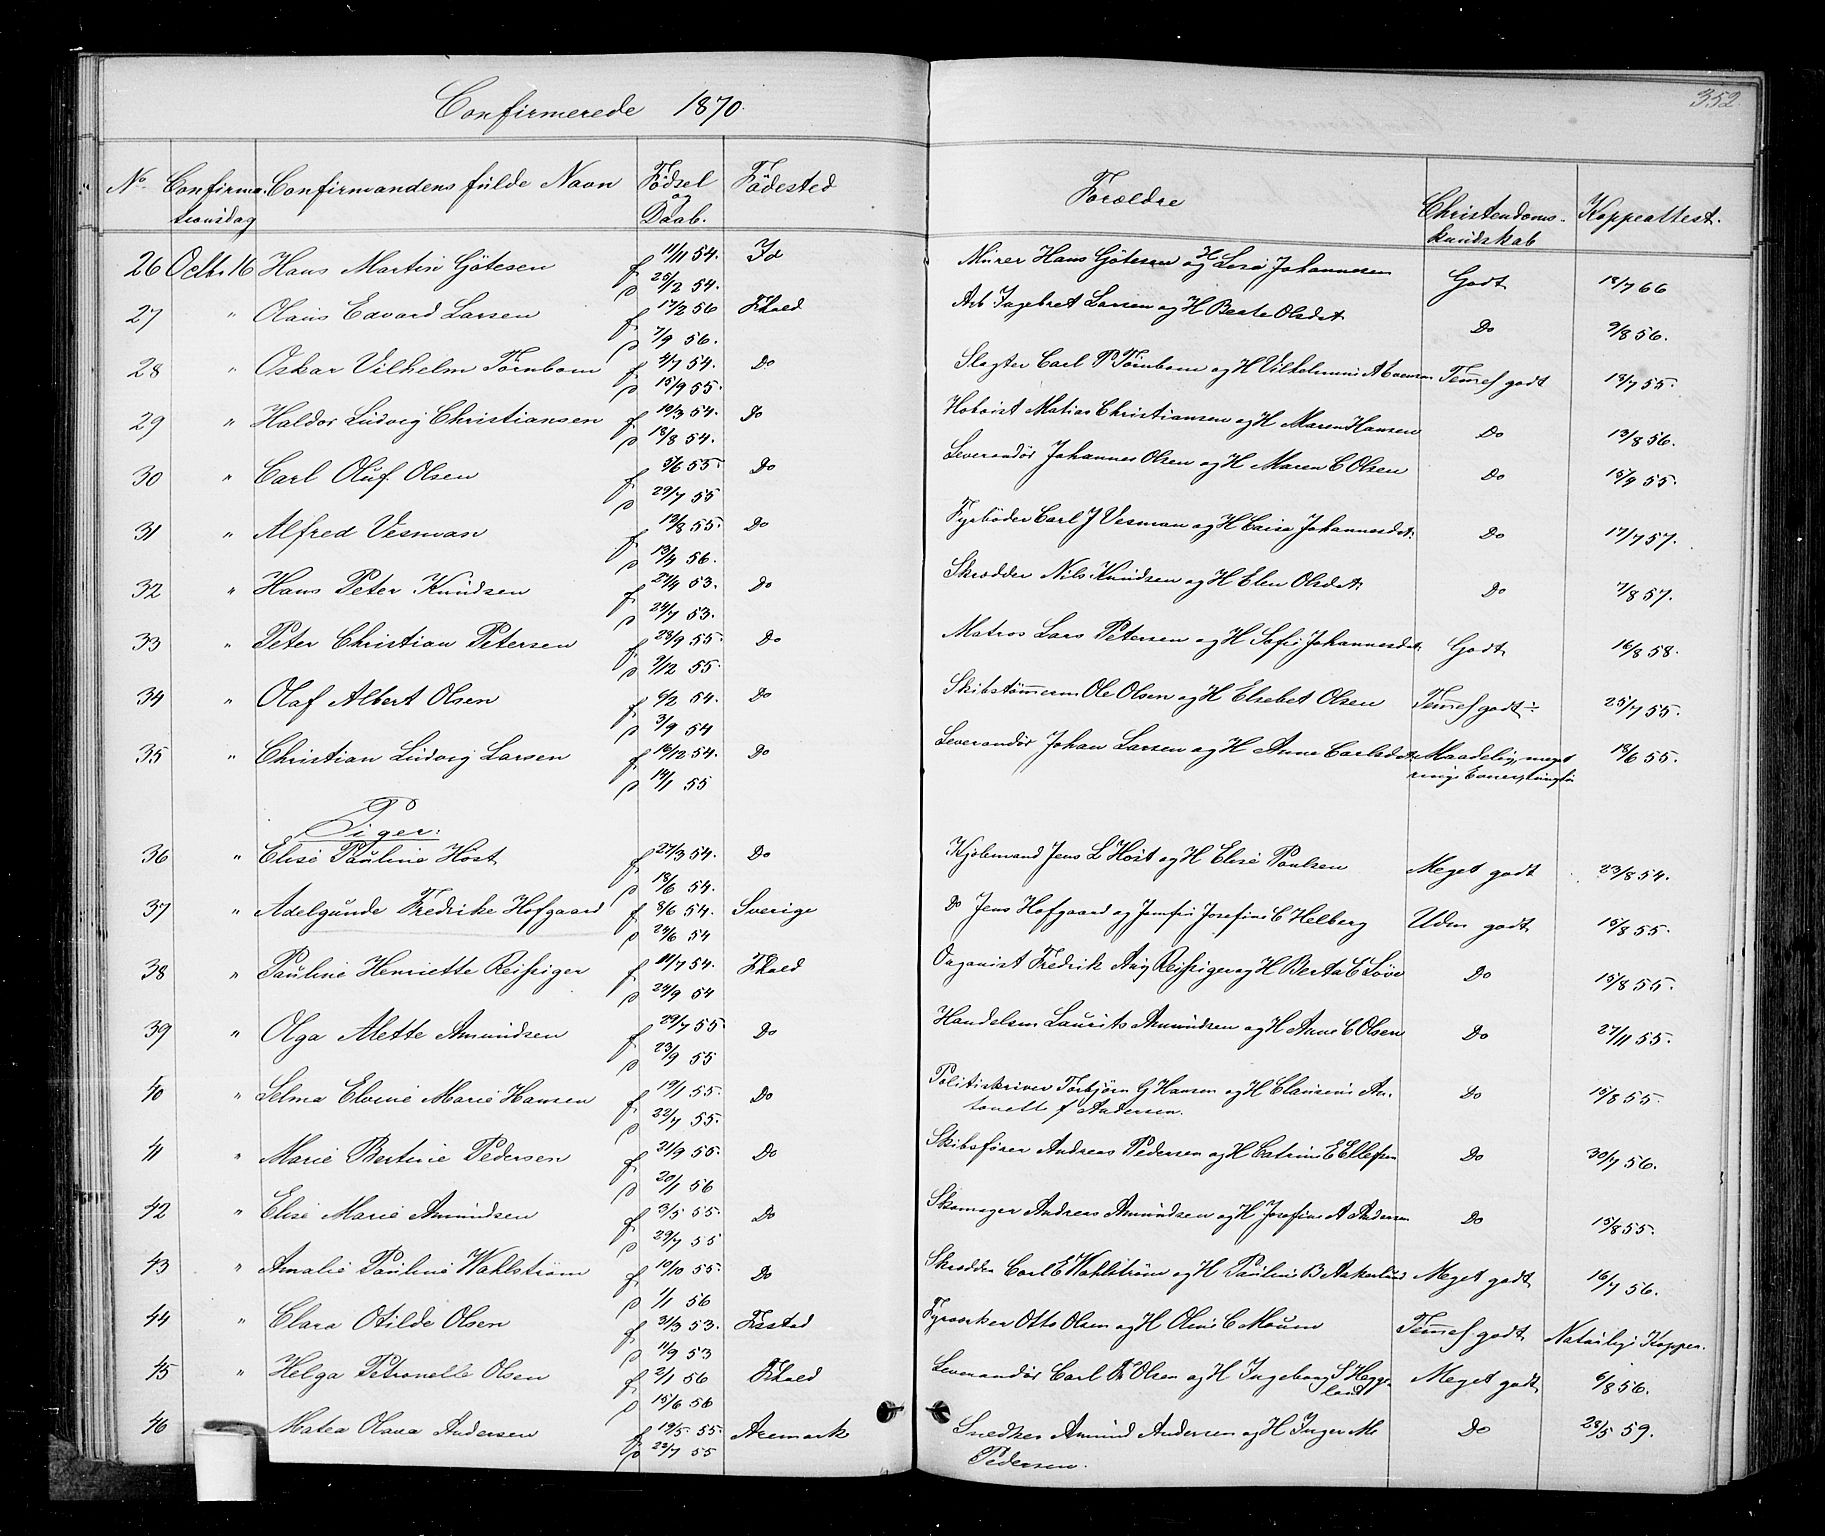 Confirmerede 1870.
352.
No. Confirmationsdag Confirmandens fulde Navn Födsel og Daab. Födested Forældre Christendomskundskab Koppeattest.
26 Octbr. 16 Hans Martin Götesen f 11/11 54. Id Murer Hans Götesen og H Lise Johannesen Godt 18/7 66
d 25/2 54.
27 " Olaus Edvard Larsen f 17/2 56 Fhald Arb Ingebret Larsen og H Berte Olsdat. Do 9/8 56.
d 7/9 56.
28 " Oskar Vilhelm Törnbom f 4/7 54. Do Slagter Carl P Törnbom og H Vilhelmine Temel godt 18/7 55.
d 15/9 55.
29 " Haldor Ludvig Christiansen f 10/3 54. Do Hoboist Matias Christiansen og H Maren Hansen Do 13/8 56.
d 18/8 54.
30 " Carl Oluf Olsen f 5/6 55 Do Leverandör Johannes Olsen og H Maren C Olsen Do 15/7 55.
d 29/7 55
31 " Alfred Vesman f 12/8 55. Do Fyrböder Carl J Vesman og H Caisa Johannesdat. Do 17/7 57.
d 13/4 56.
32 " Hans Peter Knudsen f 27/4 53. Do Skrædder Nils Knudsen og H Elen Olsdat. Do 7/8 57.
d 24/7 53.
33 " Peter Christian Petersen f 28/9 55. Do Matros Lars Petersen og H Sofie Johannesdat. Godt 16/8 58.
d 9/12 55.
34 " Olaf Albert Olsen f 6/2 54. Do Skibstömerm Ole Olsen og H Elsebet Olsen Temel godt 25/7 55.
d 3/9 54
35 " Christian Ludvig Larsen f 16/12 54. Do Leverandör Johan Larsen og H Anne Carlsdat. Maadelig, meget 18/6 55.
d 14/1 55 ringe
Piger:
36 " Elise Pauline Höst f 27/3 54. Do Kjöbmand Jens L Höst og H Elise Paulsen Meget godt 23/8 54.
d 18/6 54.
37 " Adelgunde Fredrike Hofgaard f 8/6 54. Sverige Do Jens Hofgaard og Jomfru Josefine C Helberg Udm godt 15/8 55.
d 24/6 54
38 " Pauline Henriette Reissiger f 11/7 54. Fhald Organist Fredrik Aug Reissiger og H Berta C Löve Do 15/8 55.
d 24/9 54
39 " Olga Alette Amundsen f 29/7 55. Do Handelsm Laurits Amundsen og H Anne C Olsen Do 27/11 55.
d 23/9 55
40 " Selma Elvine Marie Hansen f 19/1 55. Do Politiskriver Torbjörn G Hansen og H Clausine An- Do 15/8 55.
d 22/7 55. tonette f Andersen.
41 " Marie Bertine Pedersen f 21/9 55. Do Skibsförer Andreas Pedersen og H Catrine E Ellefsen Do 30/7 56.
d 20/1 56
42 " Elise Marie Amundsen f 3/5 55. Do Skomager Andreas Amundsen og H Josefine A Andersen Do 15/8 55.
d 29/7 55
43 " Amalie Pauline Wahlström f 10/10 55. Do Skrædder Carl E Wahlström og H Pauline B Askerlund Meget godt 16/7 56.
d 1/1 56
44 " Clara Otilde Olsen f 31/3 53. Fsstad Fyrværker Otto Olsen og H Oline C Moum Temel godt Naturlige Kopper.
d 11/9 53
45 " Helga Petronelle Olsen f 2/1 56 Fhald Leverandör Carl Olsen og H Ingeborg S Hegge- Meget godt 6/8 56.
d 15/6 56 land
46 Matea Olava Andersen f 19/5 55. Aremark Snedker Amund Andersen og H Inger M. Do 28/5 59.
d 22/7 55 Pedersen.